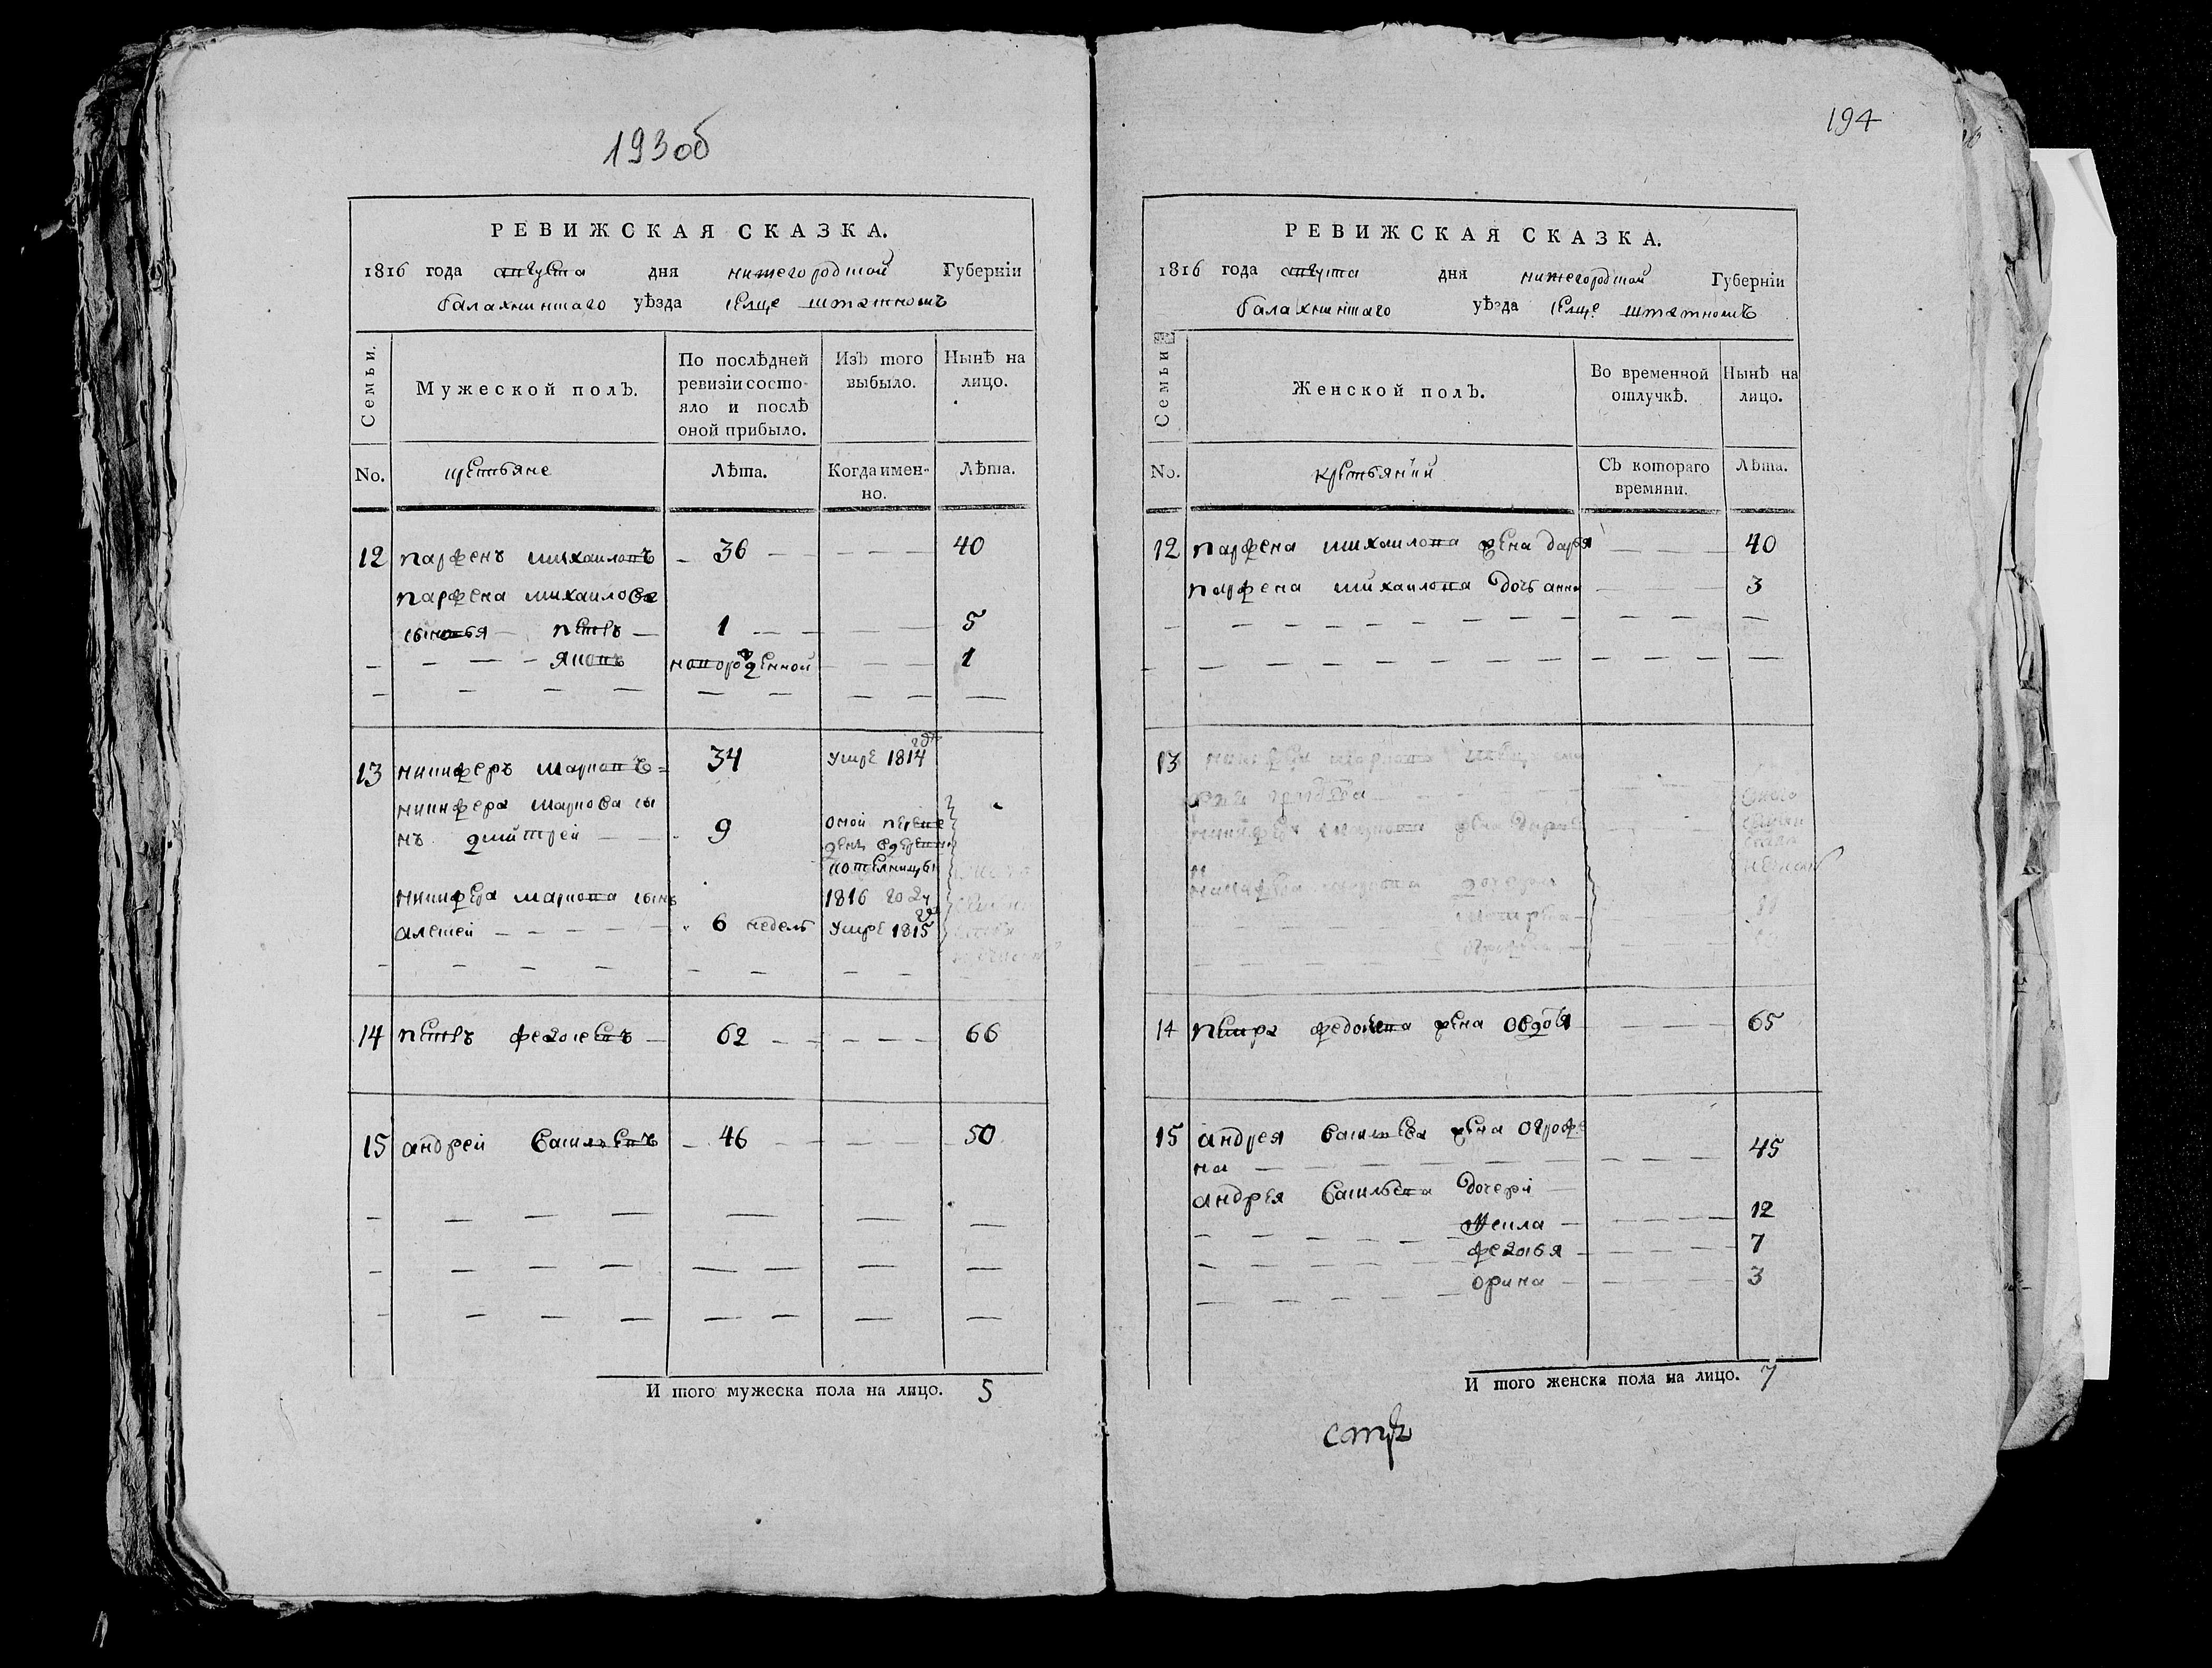 193об
РЕВИЖСКАЯ СКАЗКА.
1816 года августа дня нижегородской Губерніи
балахнинскаго уѣзда селце штатномъ
Семьи.
Мужеской полъ.
По послѣдней ревизіи состо-
яло и послѣ
оной прибыло.
Изъ того
выбыло.
Нынѣ на
лицо.
No.
крестьяне
Лѣта.
Когда имен-
но.
Лѣта.
12 парфенъ михаиловъ 36 40
парфена михаилова
сыновья петръ 1 5
яковъ новорожденной 1
13 никифоръ марковъ 34 умре 1814 год
никифера маркова сы
нъ дмитрей 9 оной переве
денъ вдеревню
1816 году
никифера маркова сынъ
алексей 6 недель умре 1815 год
14 петръ федосеевъ 62 66
15 андрей васильевъ 46 50
И того мужеска пола на лицо. 5
194
РЕВИЖСКАЯ СКАЗКА.
1816 года августа дня нижегородской Губерніи
балахнинскаго уѣзда селце штатномъ
Семьи
Женской полъ.
Во временной
отлучкѣ.
Нынѣ на
лицо.
No.
крестьяний
Съ котораго
времяни.
Лѣта.
12 парфена михаилова жена дарья 40
парфена михаилова дочь анна 3
13
14 петра федосеева жена овдотья 65
15 андрея васильева жена огрофе
на 45
андрея васильева дочери
фекла 12
федосья 7
орина 3
И того женска пола на лицо. 7